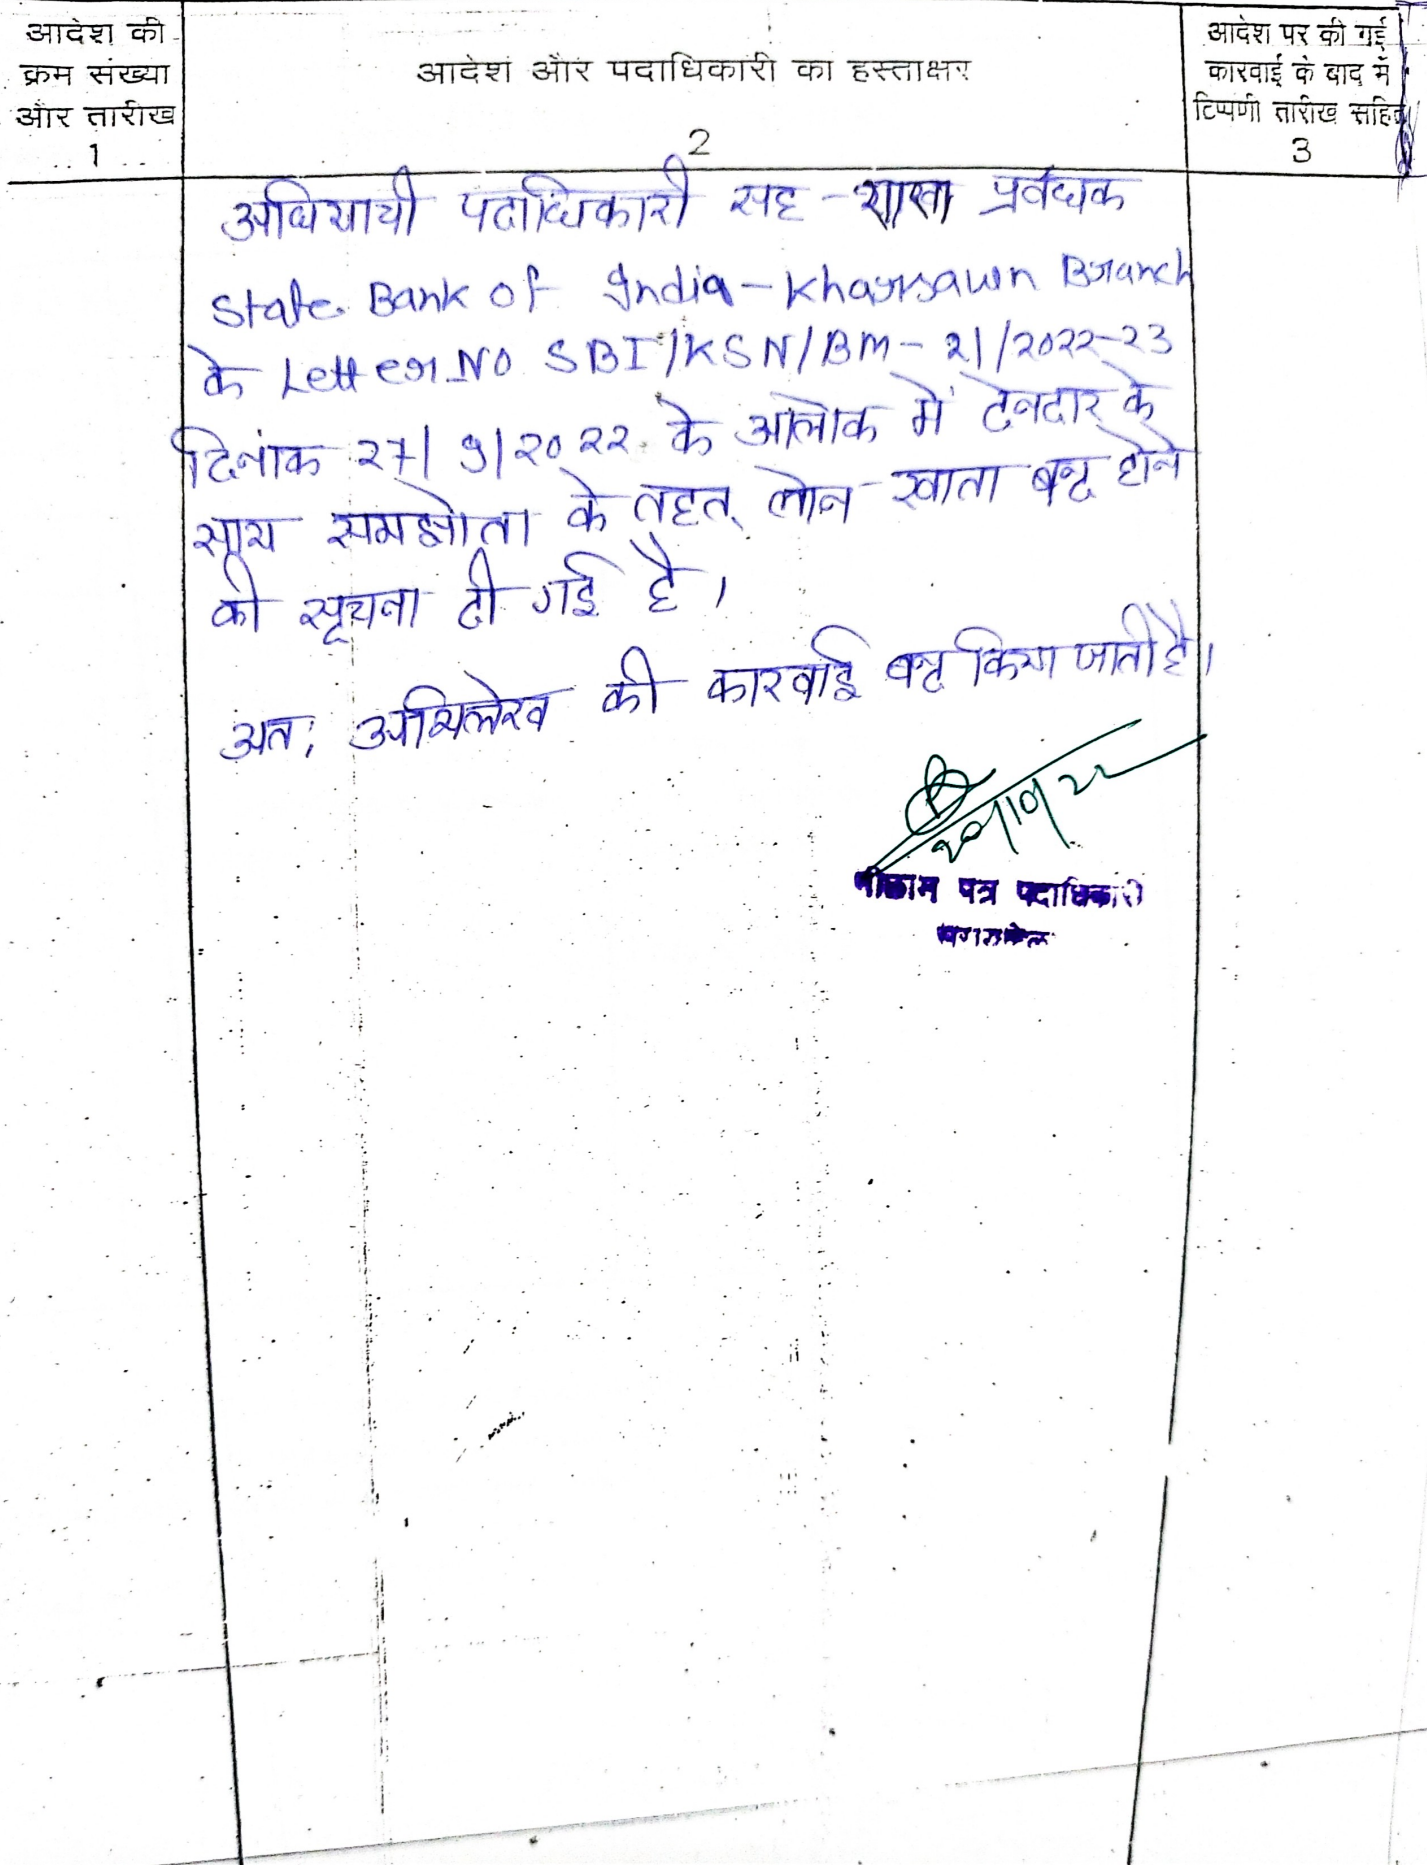 आदेश की
क्रम संख्या
और तारीख
1
आदेश और पदाधिकारी का हस्ताक्षर
2
आदेश पर की गई
कारवाई के बाद में
टिप्पणी तारीख सहित
3
अधियाची पदाधिकारी सह - शाखा प्रबंधक
State Bank of India - Kharsawn Branch
के Letter No SBI/KSN/BM - 21/2022-23
दिनांक 27/9/2022 के आलोक में देनदार के
साथ समझोता के तहत् लोन खाता बन्द होने
की सूचना दी गई है।
अत: अभिलेख की कारवाई बन्द किया जाती है।
नीलाम पत्र पदाधिकारी